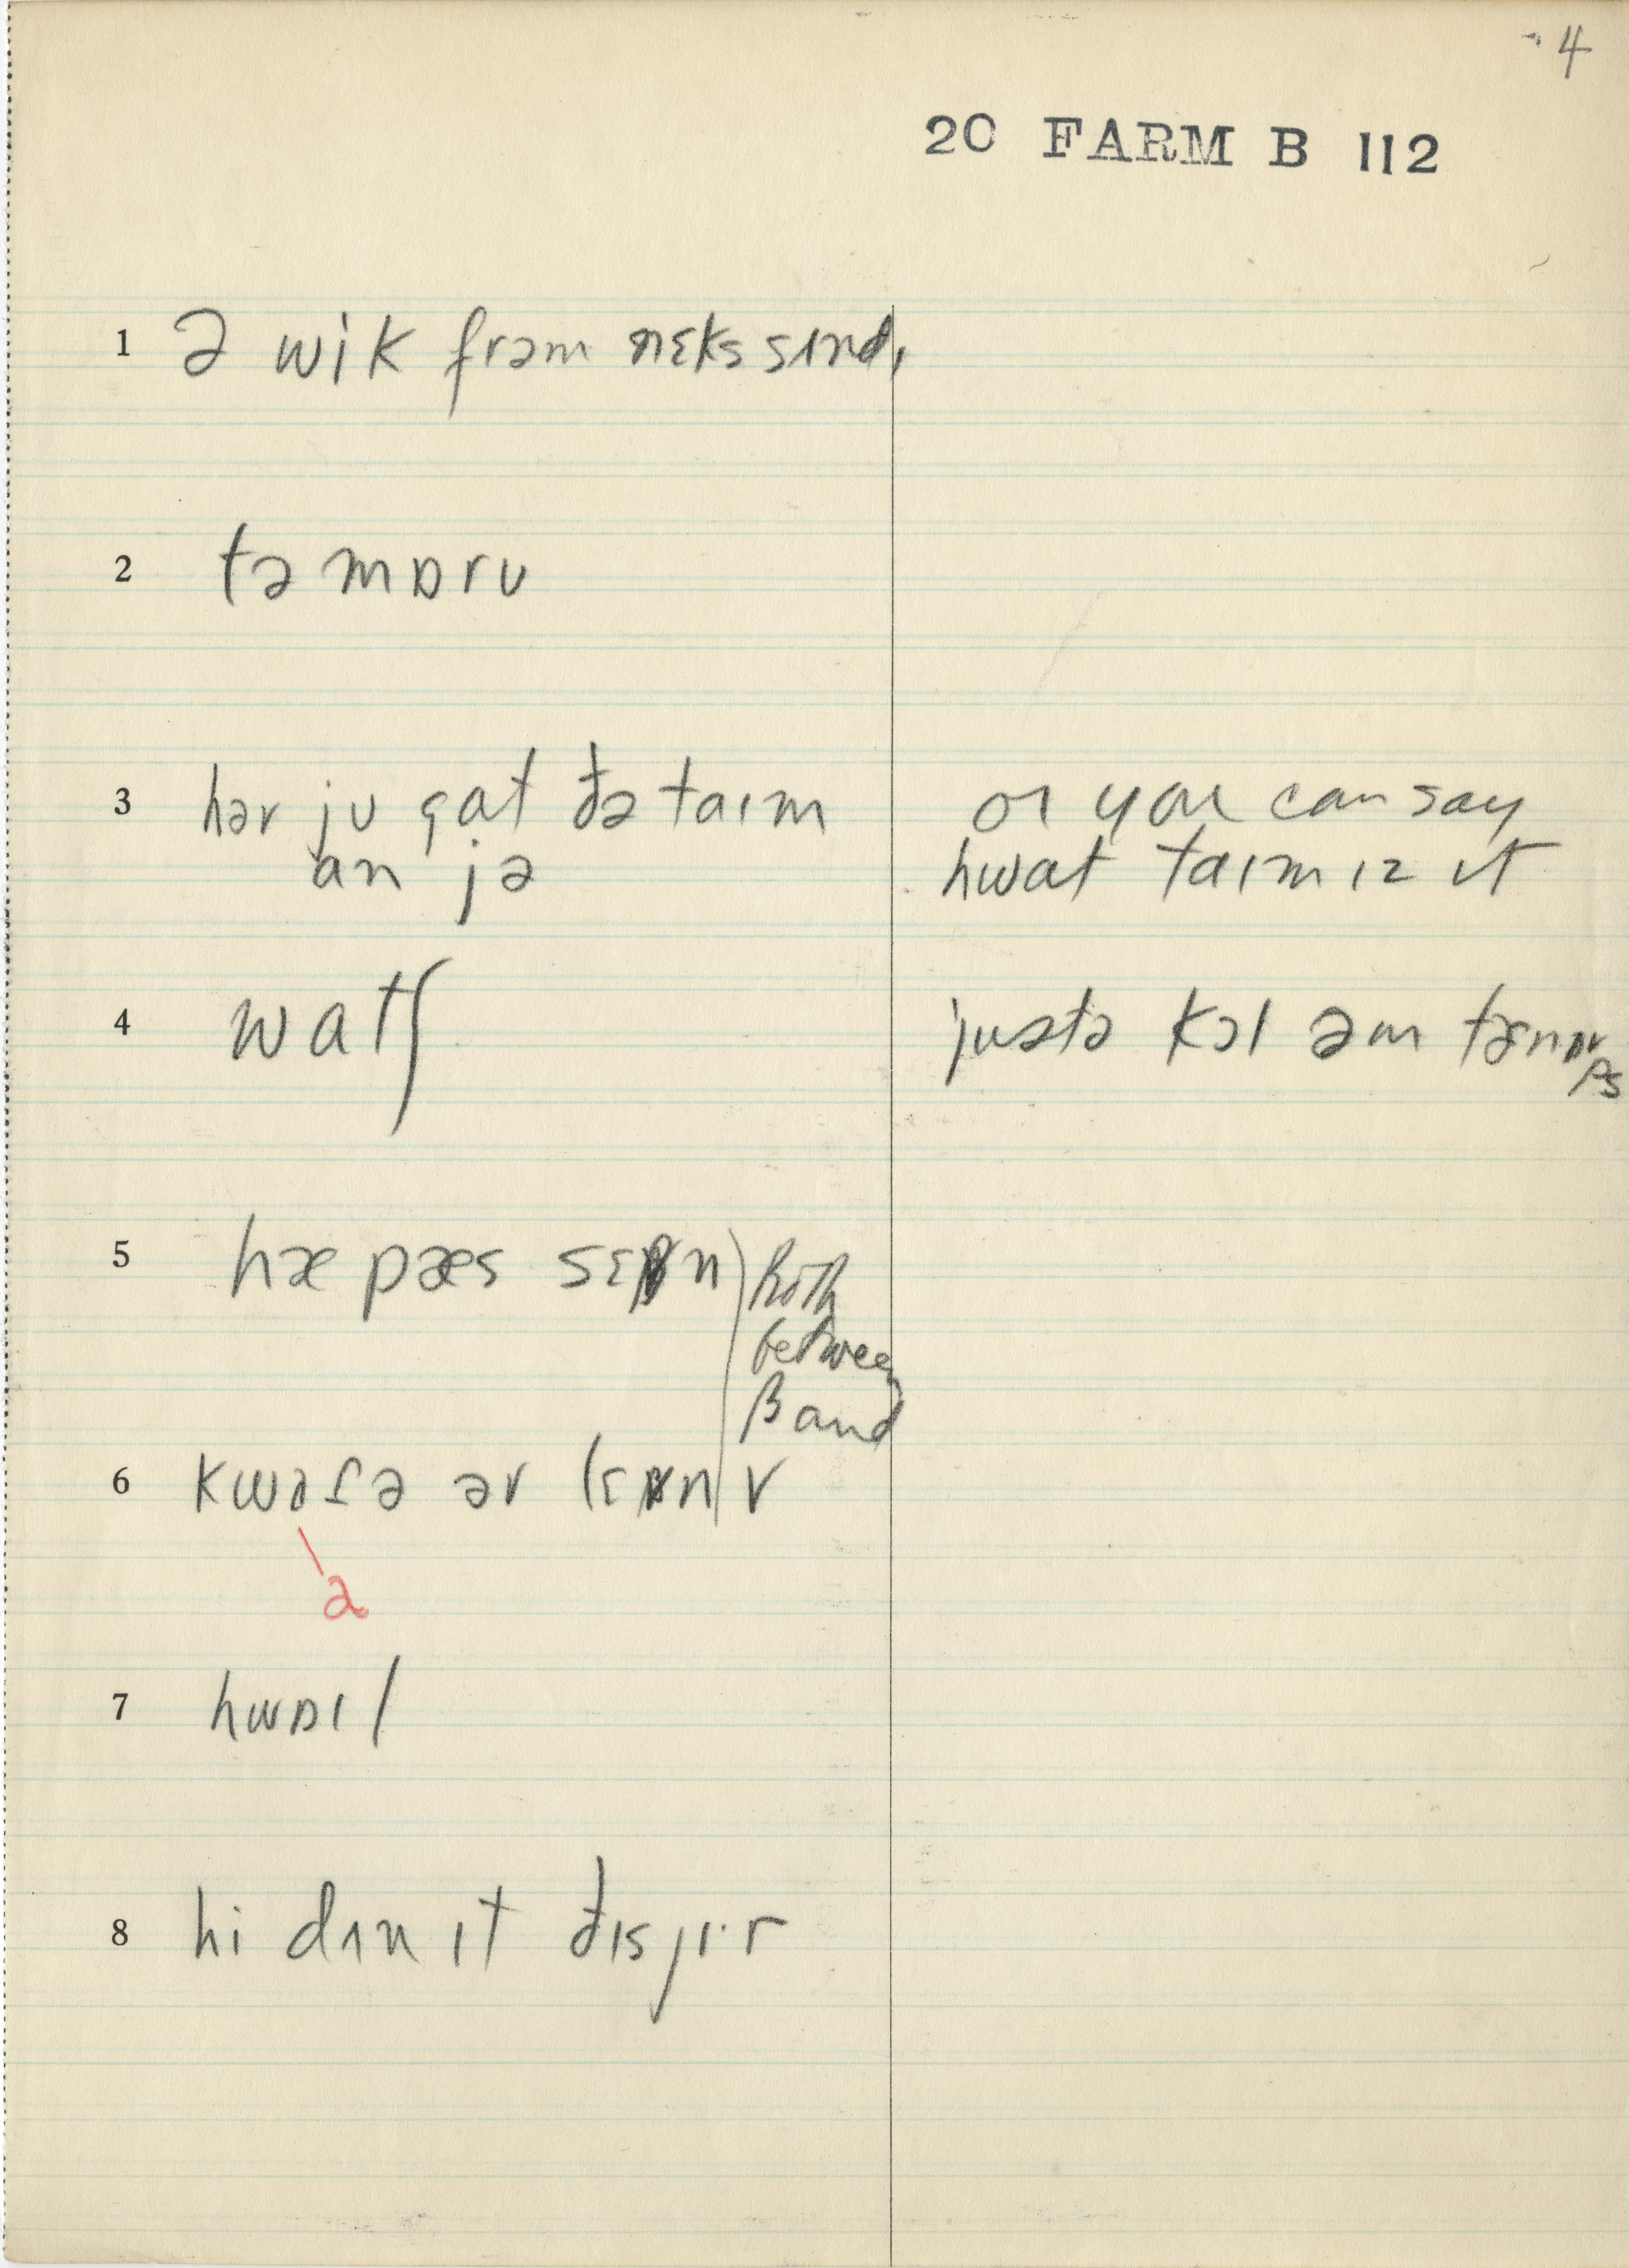 4
20 FARM B 112
1 ə wik frəm nɛks sɪnd,
2 təmɒrʊ
3 hər ju gat ðə taɪm
an jə
or you can say
hwat taɪm ɪz ɪt
4 watʃ
justə kɔl əm
5 hæ pæs sɛβn
both
between
β and
v
6 kwɔɾə ər lɛβn
ə
7 hwɒɪl
8 hi dɪn ɪt ðɪs jɪ·r